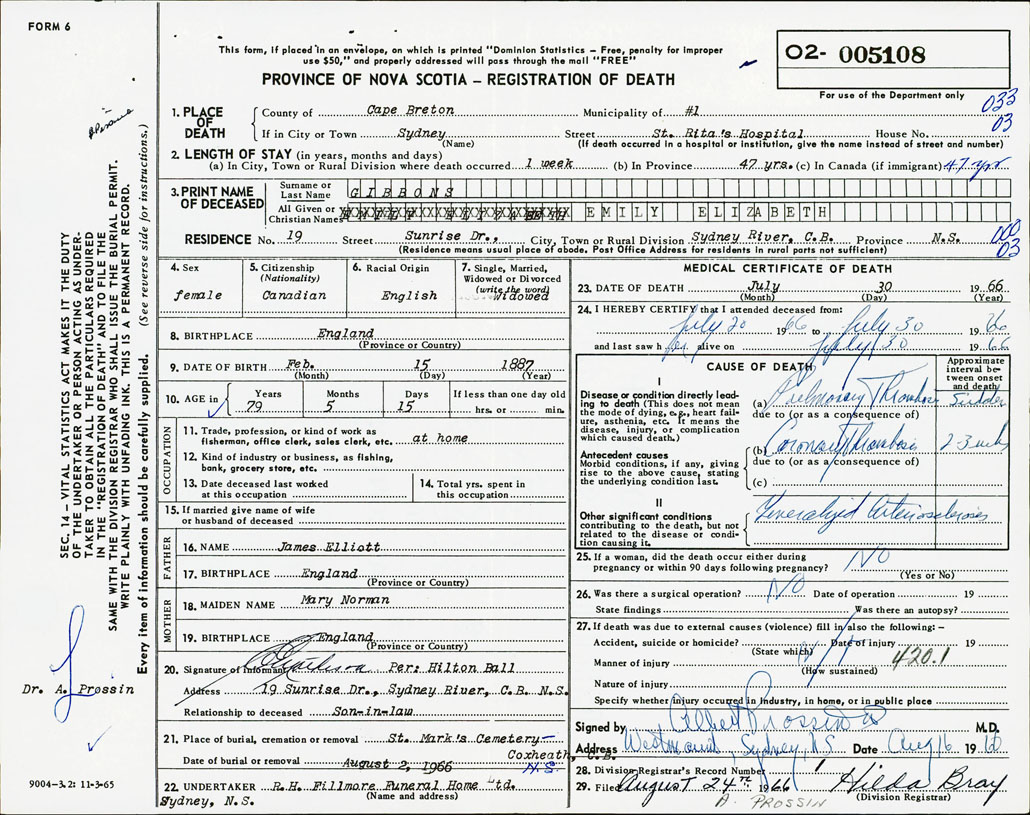 FORM 6
This form, if placed in an envelope, on which is printed "Dominion Statistics – Free, penalty for improper
use $50," and properly addressed will pass through the mail "FREE"
PROVINCE OF NOVA SCOTIA – REGISTRATION OF DEATH
O2- 005108
For use of the Department only
033
03
1. PLACE OF DEATH
County of Cape Breton Municipality of #1
If in City or Town Sydney Street St. Rita's Hospital House No.
(Name) (If death occurred in a hospital or institution, give the name instead of street and number)
2. LENGTH OF STAY (in years, months and days)
(a) In City, Town or Rural Division where death occurred 1 week (b) In Province 47 yrs. (c) In Canada (if immigrant) 47 yr
3. PRINT NAME OF DECEASED
Surname or Last Name GIBBONS
All Given or Christian Names EMILY ELIZABETH
RESIDENCE No. 19 Street Sunrise Dr., City, Town or Rural Division Sydney River, C.B. Province N.S.
(Residence means usual place of abode. Post Office Address for residents in rural parts not sufficient)
000
03
4. Sex
female
5. Citizenship
(Nationality)
Canadian
6. Racial Origin
English
7. Single, Married,
Widowed or Divorced
(write the word)
Widowed
8. BIRTHPLACE England
(Province or Country)
9. DATE OF BIRTH Feb. 15 1887
(Month) (Day) (Year)
10. AGE in
Years Months Days If less than one day old
79 5 15 hrs. or min.
OCCUPATION
11. Trade, profession, or kind of work as
fisherman, office clerk, sales clerk, etc. at home
12. Kind of industry or business, as fishing,
bank, grocery store, etc.
13. Date deceased last worked
at this occupation
14. Total yrs. spent in
this occupation
15. If married give name of wife
or husband of deceased
FATHER
16. NAME James Elliott
17. BIRTHPLACE England
(Province or Country)
MOTHER
18. MAIDEN NAME Mary Norman
19. BIRTHPLACE England
(Province or Country)
20. Signature of Informant Per: Hilton Ball
Address 19 Sunrise Dr., Sydney River, C.B. N.S.
Relationship to deceased Son-in-law
21. Place of burial, cremation or removal St. Mark's Cemetery–
Coxheath, C.B.
Date of burial or removal August 2, 1966 N.S.
22. UNDERTAKER R.H. Fillmore Funeral Home Ltd.
Sydney, N.S. (Name and address)
MEDICAL CERTIFICATE OF DEATH
23. DATE OF DEATH July 30 1966
(Month) (Day) (Year)
24. I HEREBY CERTIFY that I attended deceased from:
July 20 1966 to July 30 1966
and last saw her alive on July 30 1966
CAUSE OF DEATH
Approximate
interval be-
tween onset
and death
I
Disease or condition directly lead-
ing to death (This does not mean
the mode of dying, e.g., heart fail-
ure, asthenia, etc. It means the
disease, injury, or complication
which caused death.)
(a) Pulmonary Thrombosis Sudden
due to (or as a consequence of)
Antecedent causes
Morbid conditions, if any, giving
rise to the above cause, stating
the underlying condition last.
(b) Coronary Thrombosis 2-3 wks
due to (or as a consequence of)
(c)
II
Other significant conditions
contributing to the death, but not
related to the disease or condi-
tion causing it.
Generalized Arteriosclerosis
25. If a woman, did the death occur either during
pregnancy or within 90 days following pregnancy? NO
(Yes or No)
26. Was there a surgical operation? NO Date of operation 19
State findings Was there an autopsy?
27. If death was due to external causes (violence) fill in also the following: –
Accident, suicide or homicide? Date of injury 19
(State which)
Manner of injury 420.1
(How sustained)
Nature of injury
Specify whether injury occurred in industry, in home, or in public place
Signed by Albert Prossin M.D.
Address Westmount, Sydney, NS Date Aug 16 19
28. Division Registrar's Record Number
29. Filed August 24TH 1966 Hilda Bray
A. PROSSIN (Division Registrar)
SEC. 14 – VITAL STATISTICS ACT MAKES IT THE DUTY
OF THE UNDERTAKER OR PERSON ACTING AS UNDER-
TAKER TO OBTAIN ALL THE PARTICULARS REQUIRED
IN THE "REGISTRATION OF DEATH" AND TO FILE THE
SAME WITH THE DIVISION REGISTRAR WHO SHALL ISSUE THE BURIAL PERMIT.
WRITE PLAINLY WITH UNFADING INK. THIS IS A PERMANENT RECORD.
Every item of information should be carefully supplied. (See reverse side for instructions.)
Dr. A. Prossin
9004-3.2: 11-3-65